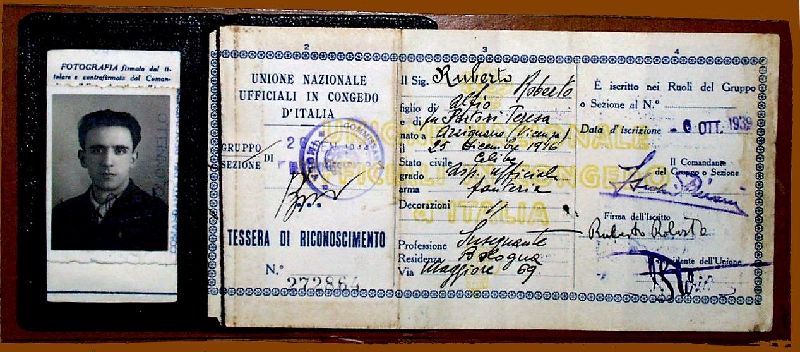 FOTOGRAFIA firmata dal ti-
tolare e controfirmata dal Coman-
2
UNIONE NAZIONALE
UFFICIALI IN CONGEDO
D'ITALIA
GRUPPO
SEZIONE DI
TESSERA DI RICONOSCIMENTO
N.° 272864
3
Il Sig. Ruberto Roberto
figlio di Alfio
e di fu Pastori Teresa
nato a Arzignano (Vicenza)
il 25 dicembre 1916
Stato civile Celibe
grado Asp. ufficiale
arma fanteria
Decorazioni
Professione Insegnante
Residenza Bologna
Via Maggiore 69
UNIONE NAZIONALE
UFFICIALI IN CONGEDO
d'ITALIA
4
È iscritto nei Ruoli del Gruppo
o Sezione al N.°
Data d'iscrizione - 6 OTT. 1939
Il Comandante
del Gruppo o Sezione
Firma dell'Iscritto
Ruberto Roberto
Presidente dell'Unione